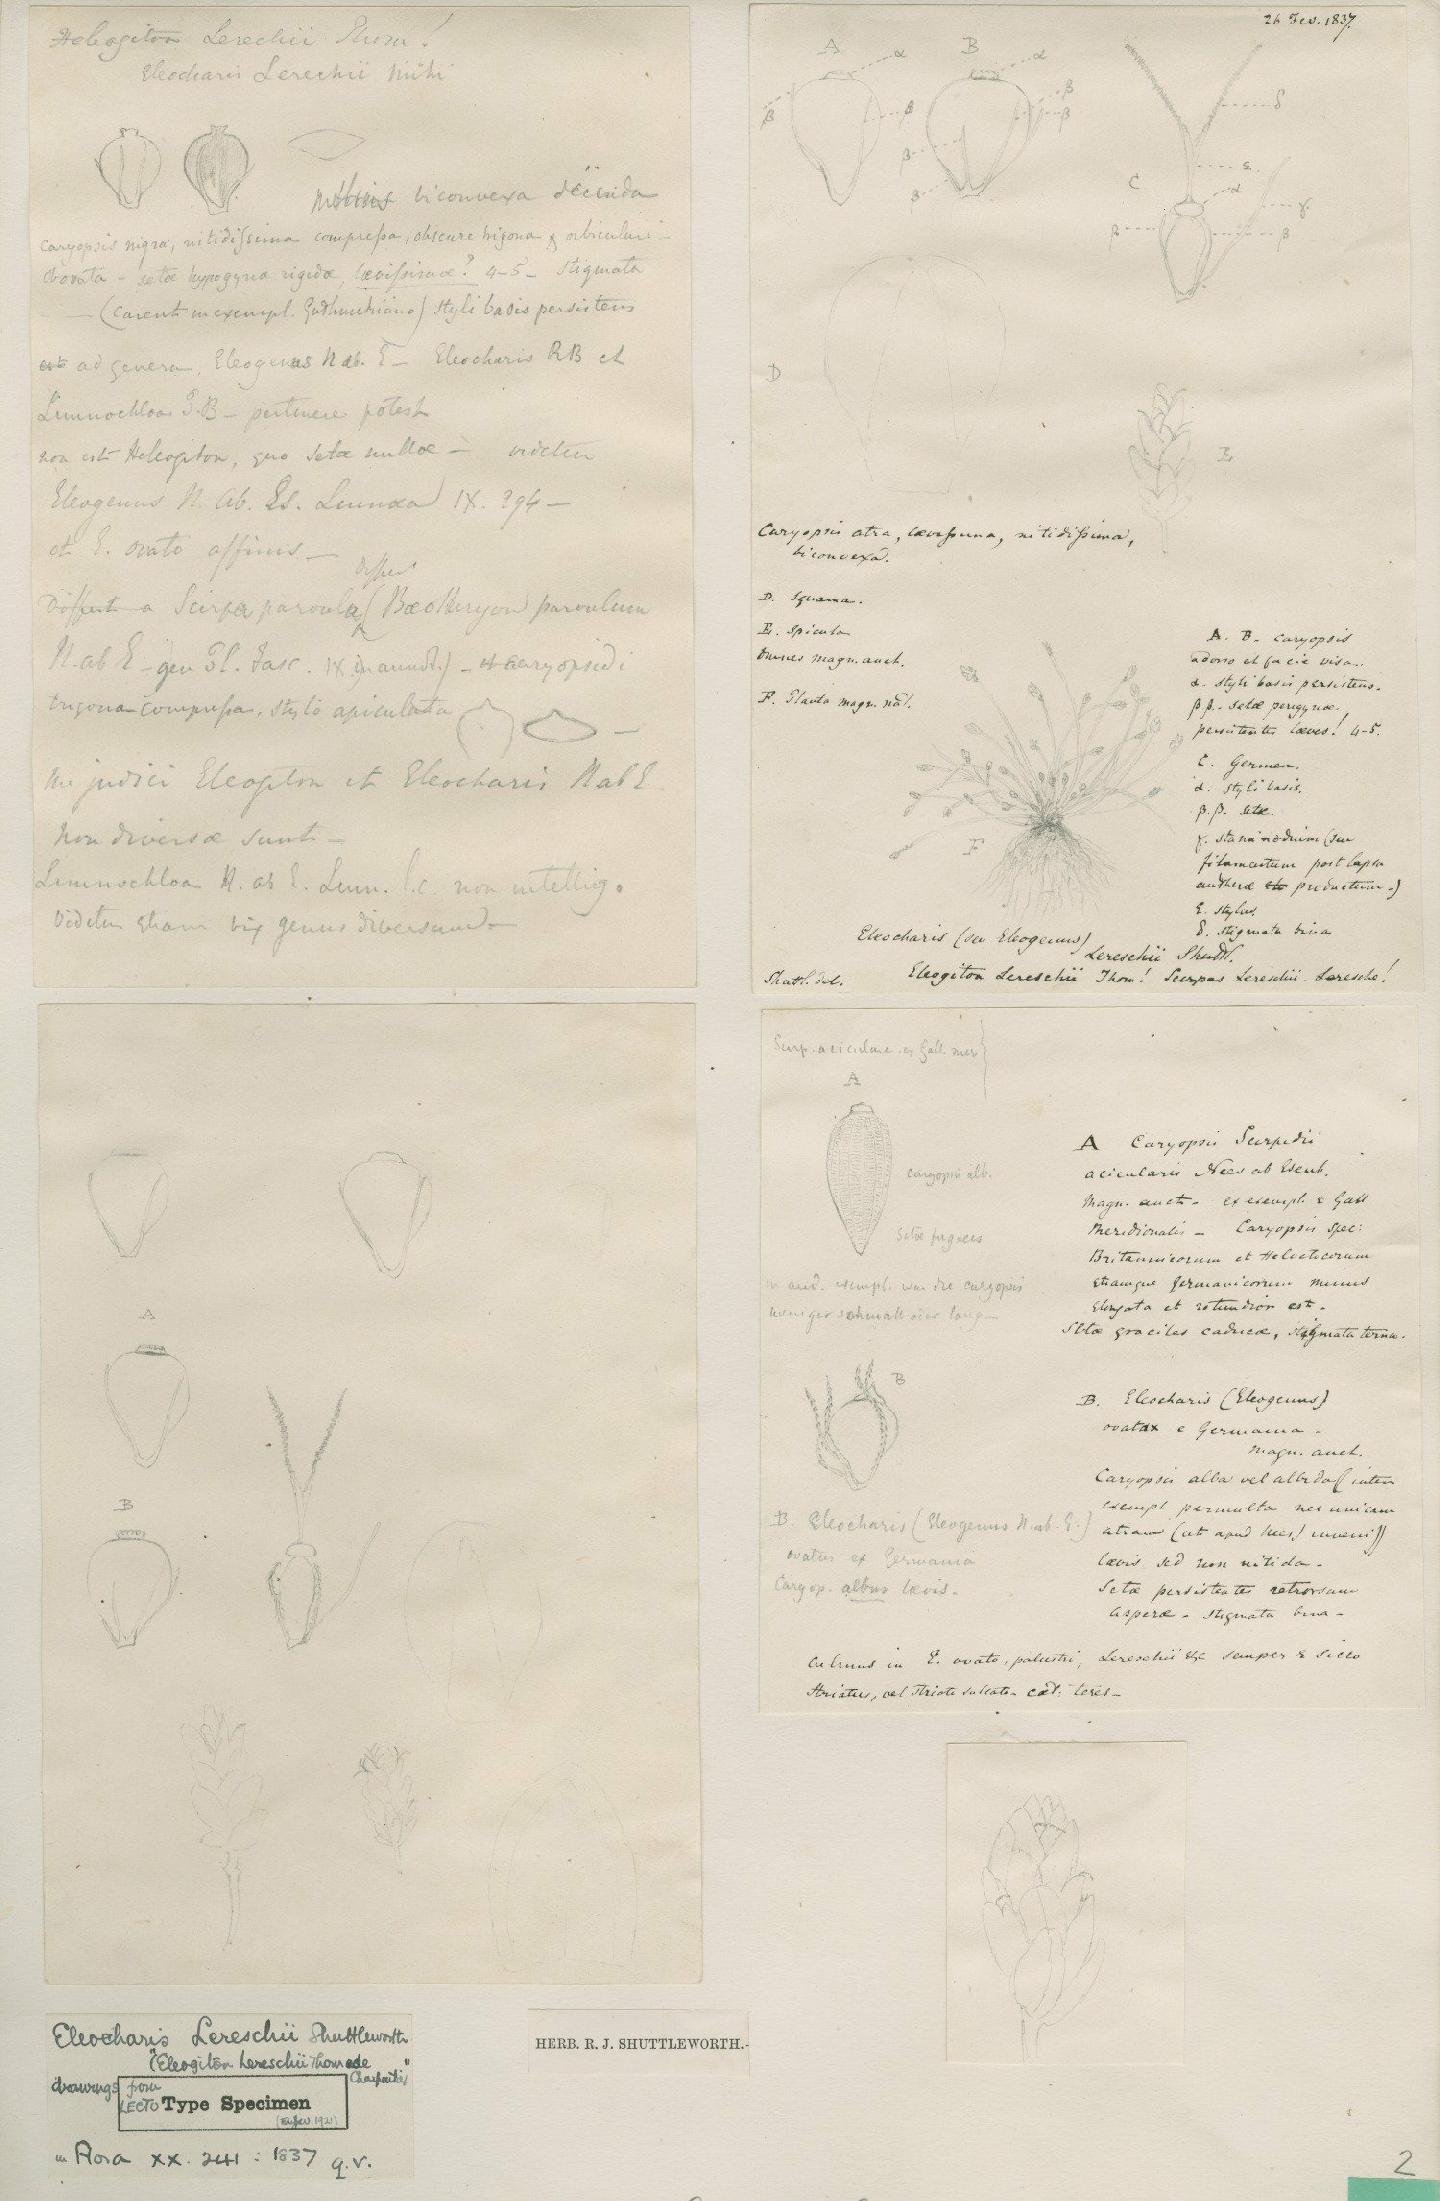 Heleogiton Lereschii Thom!
Eleocharis Lereschii mihi
biconvexa
Caryopsis nigra, nitidissima compressa, obscure trigona & orbiculari-
obovata - setæ hypogynæ rigidæ, lævissimæ? 4-5 - Stigmata
(carent in exempl. Guthnickiano) styli basis persistens
ad genera, Eleogenus N ab. E - Eleocharis RB et
Limnochloa P.B - pertinere potest
non est Heleogiton, quo setæ nullæ - videtur
Eleogenus N. ab. Es. Linnæa IX. 294 -
et E. ovato affinis -
Differt
Differt a Scirpo parvulo (Bæothryon parvulum
N. ab E - gen Fl. Fasc. IX in annot.) - caryopsidi
trigona compressa, stylo apiculata -
Me judici Eleogiton et Eleocharis N ab E
non diversæ sunt -
Limnochloa N. ab E. Linn. l.c. non intellig.
Videtur etiam vix genus diversum -
26 Fev. 1837.
A B
α α
β β β β β β
δ
ε
C α γ
β β
D
E
Caryopsis atra, lævissima, nitidissima,
biconvexa.
D. Squama.
E. Spicula
omnes magn. auct.
F. Planta magn. nat.
F
A. B. Caryopsis
a dorso et facie visa.
α. styli basis persistens.
β.β. setæ perigynæ,
persistentes læves! 4-5.
C. Germen.
α. styli basis.
β.β. setæ.
γ. staminodium (seu
filamentum post lapsum
antheræ productum.)
ε. stylus.
δ. stigmata bina
Eleocharis (seu Eleogenus)
Lereschii Shuttl.
Shuttl. del.
Eleogiton Lereschii Thom! Scirpus Lereschii Leresche!
A
B
Scirp. acicular. ex Gall. mer.
A
caryopsis alb.
Setæ fugaces
in and. exempl. war die caryopsis
weniger schmall oder lang -
A Caryopsis Scirpidii
acicularis Nees ab Esenb.
Magn. auct. - ex exempl. e Gall
Meridionalis - Caryopsis spec:
Britannicorum et Helveticorum
etiamque Germanicorum minus
elongata et rotundior est.
Setæ graciles caducæ, stigmata terna.
B
B. Eleocharis (Eleogenus N. ab. E.)
ovatus ex Germania
Caryop. albus lævis.
B. Eleocharis (Eleogenus)
ovata e Germania.
Magn. auct.
Caryopsis alba vel albida (inter
exempl. permulta nec unicam
atram (ut apud Nees) inveni))
lævis sed non nitida.
Setæ persistentes retrorsum
asperæ - stigmata bina -
Culmus in E. ovato, palustri, Lereschii &c semper e sicco
striatus, vel striato sulcato- cæt: teres -
Eleocharis Lereschii Shuttleworth
"(Eleogiton Lereschii Thom. ex de Charpentier"
drawings from
LECTO Type Specimen
in Flora XX. 241 : 1837 q.v.
HERB. R. J. SHUTTLEWORTH.-
2